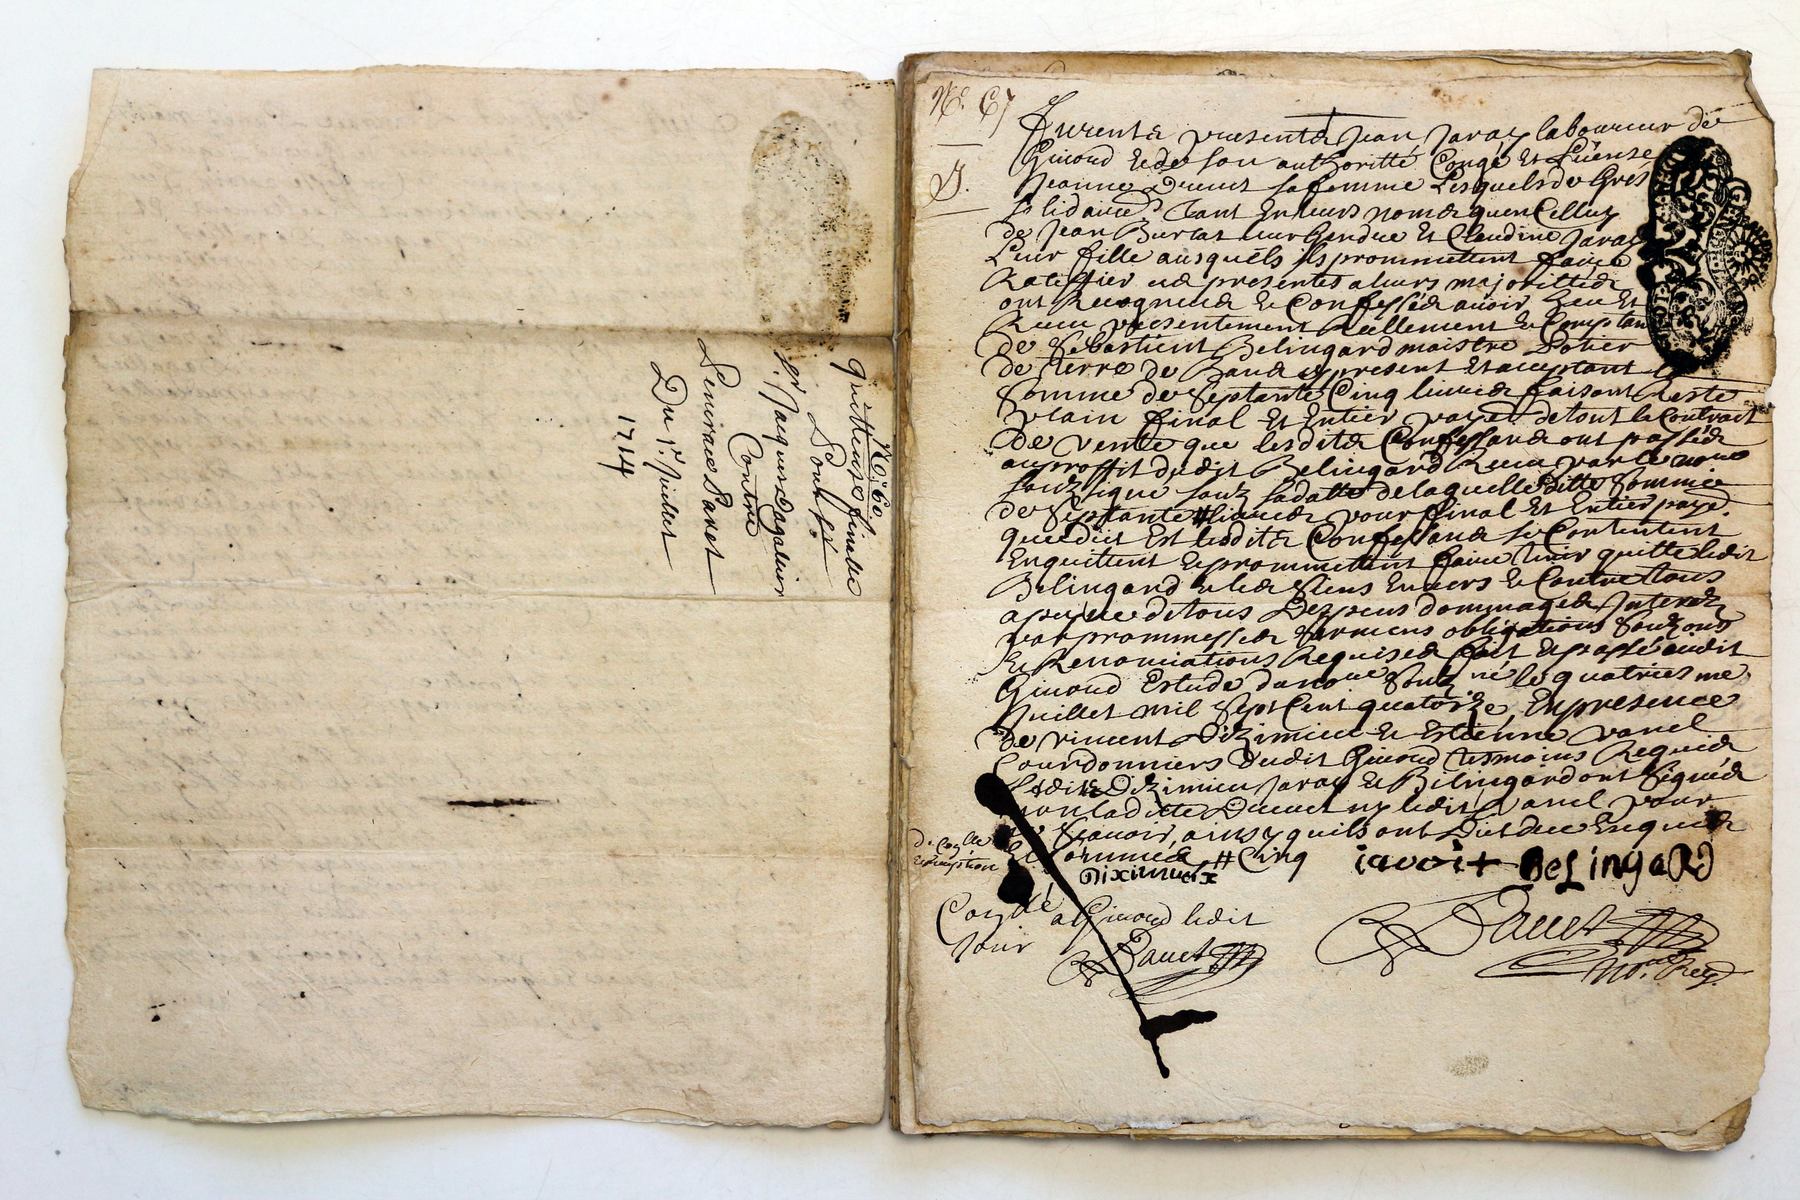 No. 60
quittense finalle
Pour
sr. Jacques Dagallier
Contre
Benciraue Panet
Du 1r. Juillet
1714
No. 67
Furent presente Jean Jaray laboureur de
Giuord et de son authoritté Congé et License
Jeanne Ducret sa femme Lesquels de Gres
solidaires tant en leurs noms qu'en Celluy
de Jean Burlat leur Gendre et Claudine Jaray
Leur fille ausquels ils prommettent faire
Ratiffier ces presentes a leurs majorittés
ont Recogneus et Confessés avoir heu et
Receu presentement Reellement et Comptan
de Sebastient Belingard maistre Potier
de terre de present et acceptant la
somme de septante Cinq livres faisant Reste
plain final et Entier paye de tout le Contract
de vente que lesdits Confessans ont passés
au proffit dudit Belingard Receu par le noe
souz signé souz sa datte de laquelle ditte somme
de septante # livres pour final et Entier paye
que dict est lesdits Confessans se Contentent
Enquittent et prommettent faire tenir quitte ledit
Belingard et les siens Envers et Contre tous
a peyne de tous Despens dommages Interes
par prommesses sermens obligations
et Renonciations Requises fait et passé audit
Giuord Estude du noe souz né le quatriesme
Juillet mil sept Cent quatorze En presence
de vincent Diximieu et Estienne vanel
Courdonniers dudit Giuord tesmoins Requis
Lesdits Diximieu Jaray et Belingard ont signés
non laditte Ducret ny ledit vanel pour
ne sçavoir ainsy quils ont Dict de ce Enquis
et sommés # Cinq
Diximieux
iavoit BeLingaRD
Conde a Giuord ledit
Jour
Panet
Panet
no. Rey.